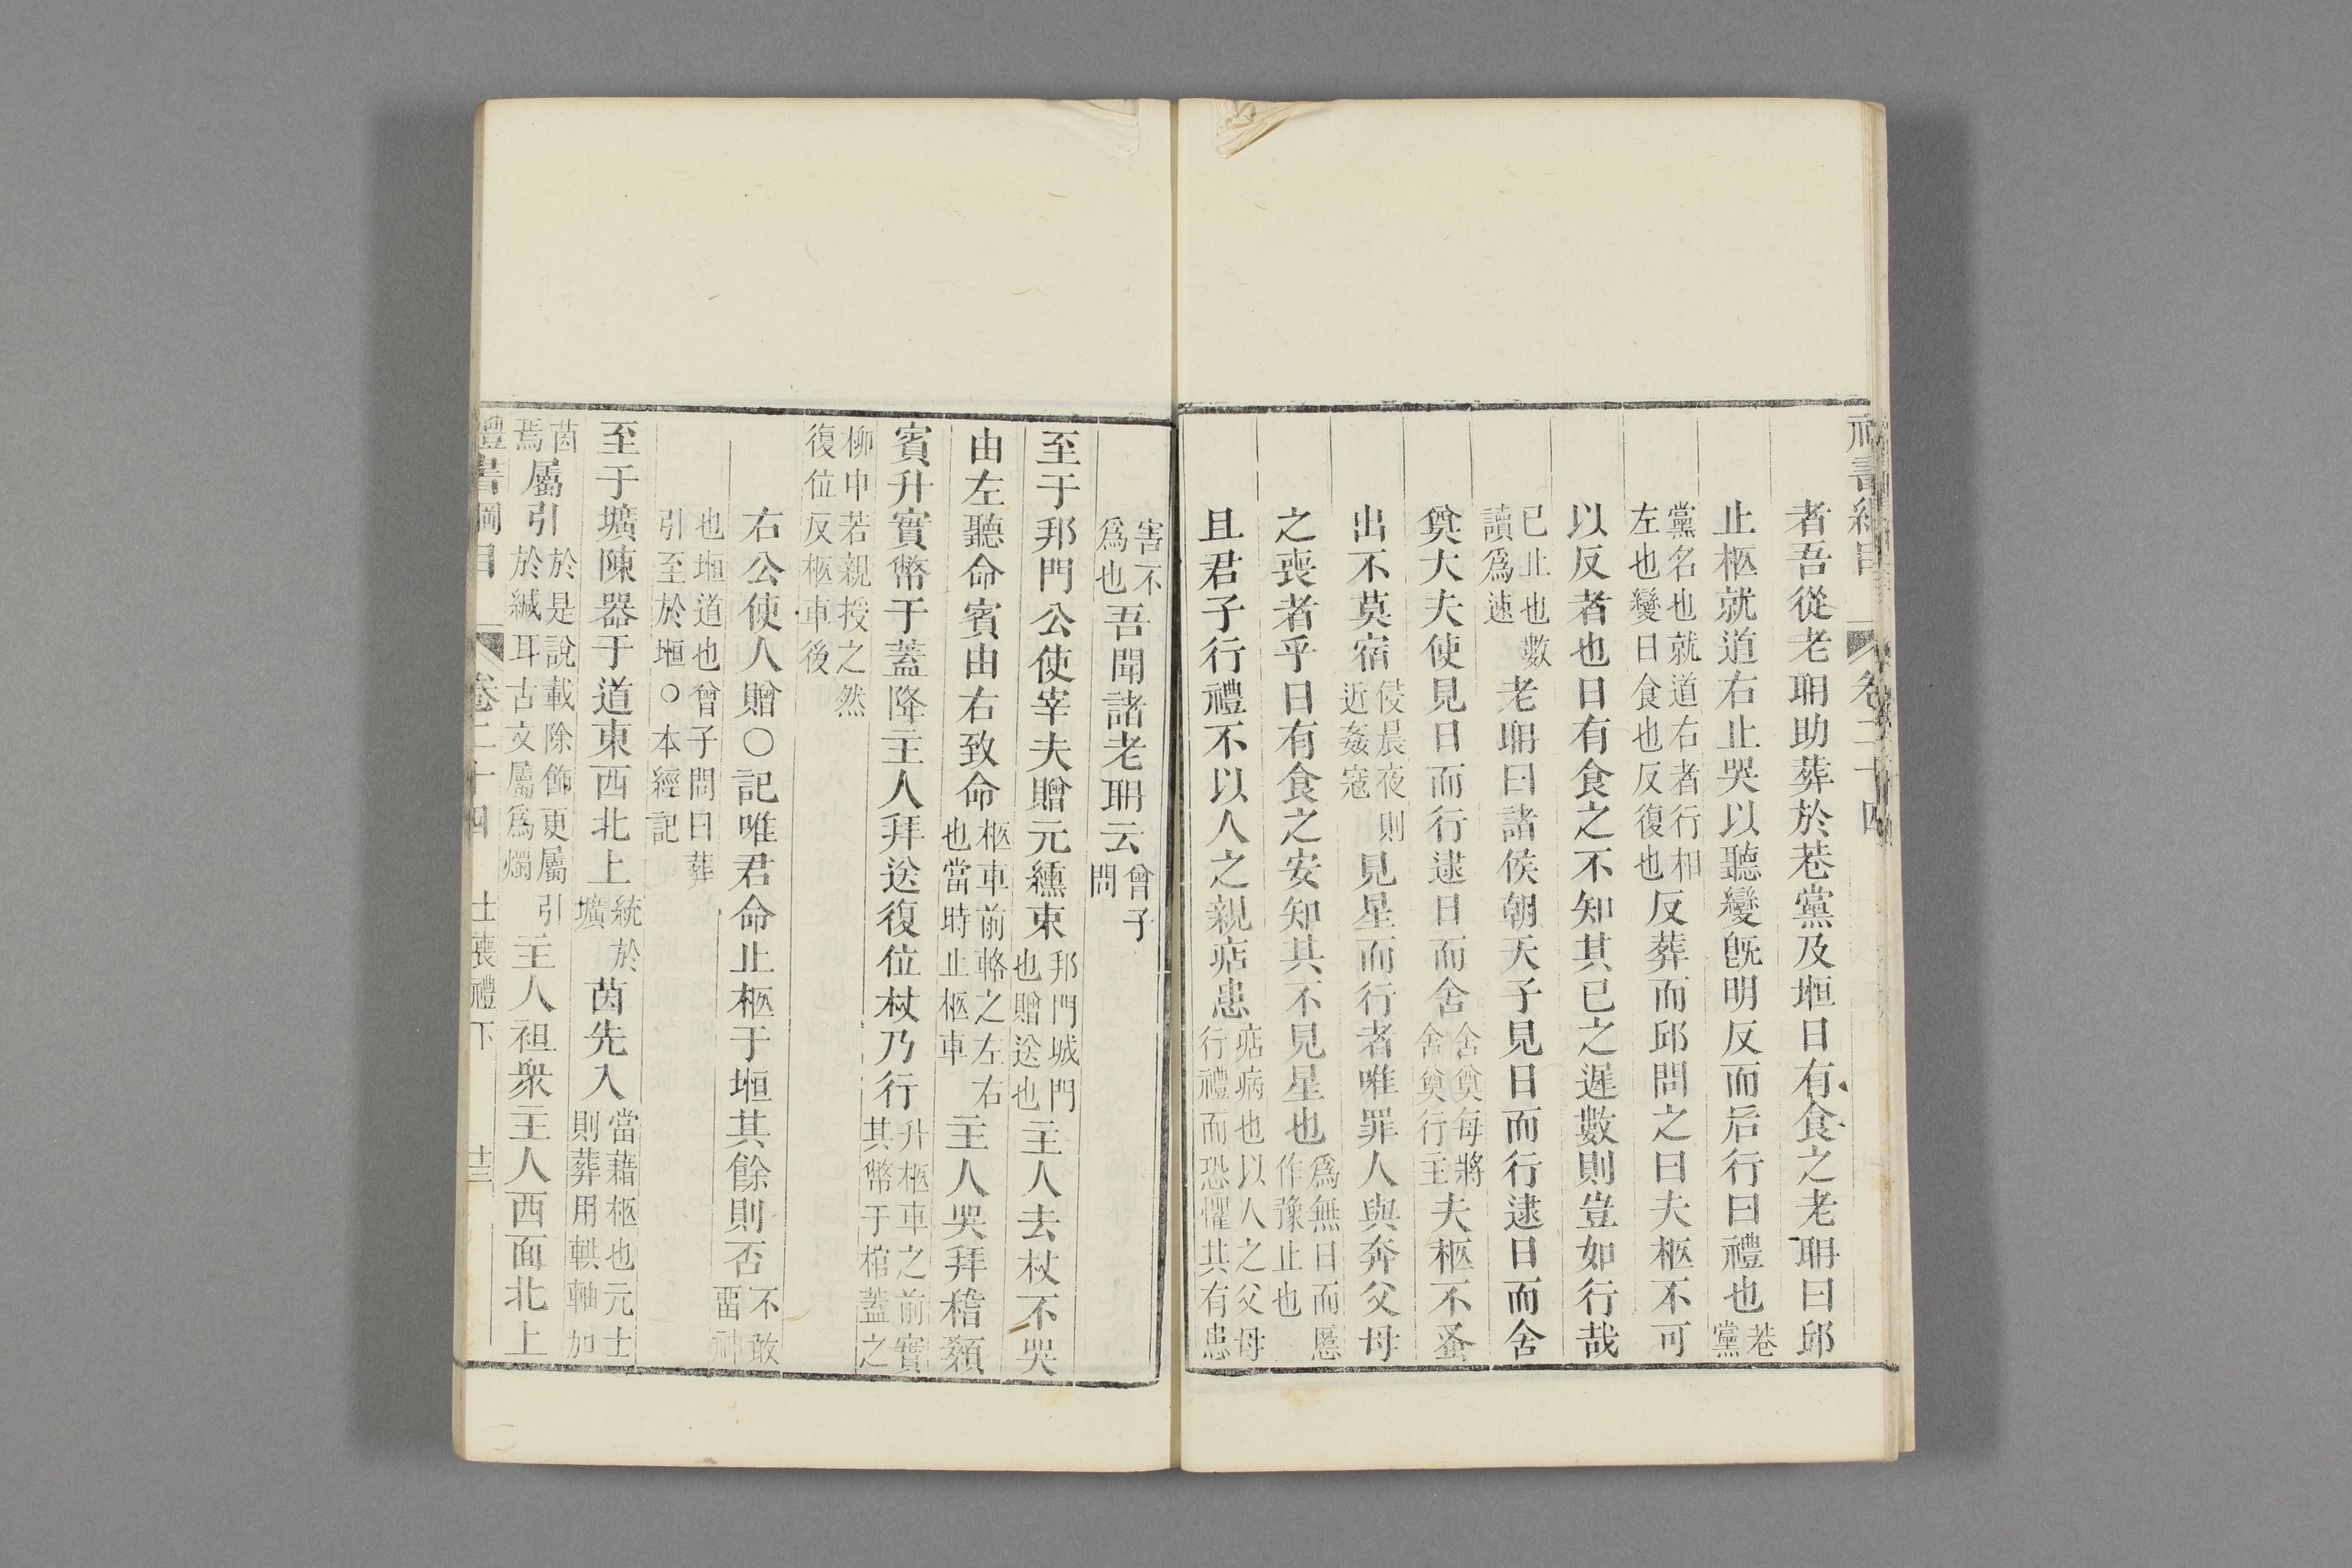 禮書綱目 卷二十四
者吾從老聃助葬於巷黨及堩日有食之老聃曰邱
止柩就道右止哭以聽變旣明反而后行曰禮也巷黨
黨名也就道右者行相左也變日食也反復也反葬而邱問之曰夫柩不可
以反者也日有食之不知其已之遲數則豈如行哉
已止也數讀爲速老聃曰諸侯朝天子見日而行逮日而舍
奠大夫使見日而行逮日而舍舍奠每將舍奠行主夫柩不蚤
出不莫宿侵晨夜則近姦寇見星而行者唯罪人與奔父母
之喪者乎日有食之安知其不見星也爲無日而慝作豫止也
且君子行禮不以人之親痁患痁病也以人之父母行禮而恐懼其有患
害不爲也吾聞諸老聃云曾子問
至于邦門公使宰夫贈元纁束邦門城門也贈送也主人去杖不哭
由左聽命賓由右致命柩車前輅之左右也當時止柩車主人哭拜稽顙
賓升實幣于蓋降主人拜送復位杖乃行升柩車之前實其幣于棺蓋之
柳中若親授之然復位反柩車後
右公使人贈○記唯君命止柩于堩其餘則否不敢畱神
也堩道也曾子問曰葬引至於堩○本經記
至于壙陳器于道東西北上統於壙茵先入當藉柩也元士則葬用輁軸加
茵焉屬引於是說載除飾更屬引於緘耳古文屬爲燭主人袒衆主人西面北上
禮書綱目 卷二十四 士喪禮下 十三